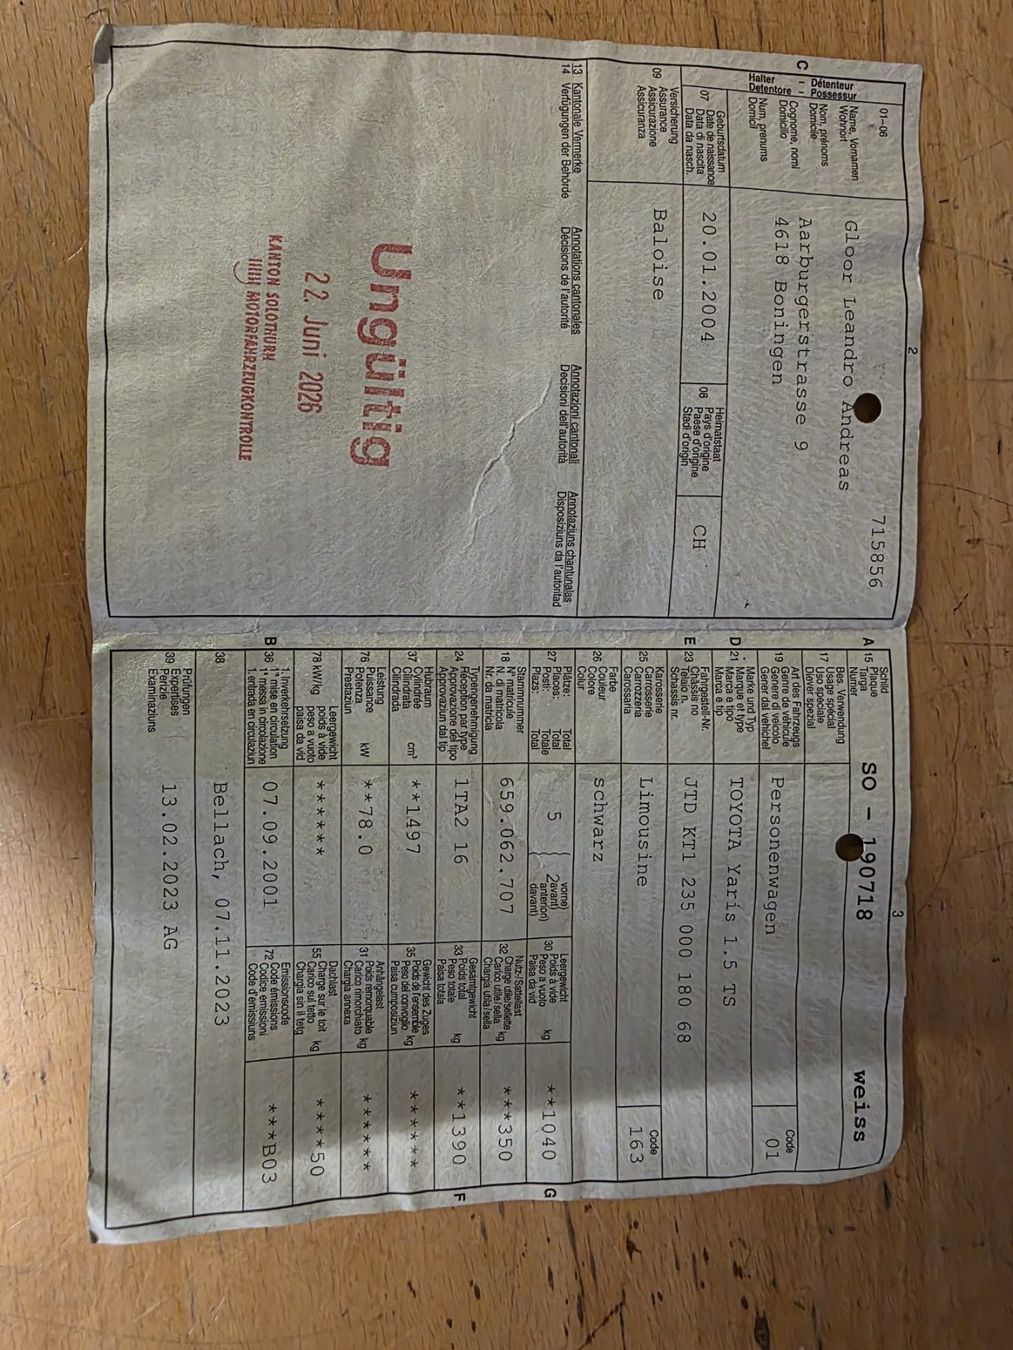 2
01-06
715856
C Détenteur - Possessur
Halter - Detentore
Name, Vornamen
Wohnort
Nom, prénoms
Domicile
Cognome, nomi
Domicilio
Num, prenums
Domicil
Gloor Leandro Andreas
Aarburgerstrasse 9
4618 Boningen
07 Geburtsdatum
Date de naissance
Data di nascita
Data da nasch.
20.01.2004
08 Heimatstaat
Pays d'origine
Paese d'origine
Stadi d'origin
CH
09 Versicherung
Assurance
Assicurazione
Assicuranza
Baloise
13 Kantonale Vermerke Annotations cantonales Annotazioni cantonali Annotaziuns chantunalas
14 Verfügungen der Behörde Décisions de l'autorité Decisioni dell'autorità Disposiziuns da l'autoritad
Ungültig
22. Juni 2026
KANTON SOLOTHURN
MOTORFAHRZEUGKONTROLLE
3
A 15 Schild
Plaque
Targa
Numer
SO - 190718 weiss
17 Bes. Verwendung
Usage spécial
Uso speciale
Diever spezial
19 Art des Fahrzeugs
Genre de véhicule
Genere di veicolo
Gener dal vehichel
Personenwagen
Code
01
D 21 Marke und Typ
Marque et type
Marca e tipo
Marca e tip
TOYOTA Yaris 1.5 TS
E 23 Fahrgestell-Nr.
Châssis no
Telaio n.
Schassis nr.
JTD KT1 235 000 180 68
25 Karosserie
Carrosserie
Carrozzeria
Carossaria
Limousine
Code
163
26 Farbe
Couleur
Colore
Colur
schwarz
27 Plätze: Total
Places: Total
Posti: Totale
Plazs: Total
5
vorne)
2 avant)
anteriori)
davant)
30 Leergewicht
Poids à vide
Peso a vuoto kg
Paisa da vid
**1040
G
18 Stammnummer
N° matricule
N. di matricola
Nr. da matricla
659.062.707
32 Nutz-/Sattellast
Charge utile/sellette
Carico utile/sella kg
Chargia utila/sella
***350
24 Typengenehmigung
Réception par type
Approvazione del tipo
Approvaziun dal tip
1TA2 16
33 Gesamtgewicht
Poids total
Peso totale kg
Paisa totala
**1390
F
37 Hubraum
Cylindrée
Cilindrata cm³
Cilindrada
**1497
35 Gewicht des Zuges
Poids de l'ensemble
Peso del convoglio kg
Paisa cumposiziun
******
76 Leistung
Puissance
Potenza kW
Prestaziun
**78.0
31 Anhängelast
Poids remorquable
Carico rimorchiato kg
Chargia annexa
******
78 kW/kg Leergewicht
poids à vide
peso a vuoto
paisa da vid
******
55 Dachlast
Charge sur le toit
Carico sul tetto kg
Chargia sin il tetg
****50
B 36 1. Inverkehrsetzung
1re mise en circulation
1a messa in circolazione
1. entrada en circulaziun
07.09.2001
72 Emissionscode
Code émissions
Codice emissioni
Code d'emissiuns
***B03
38
Bellach, 07.11.2023
39 Prüfungen
Expertises
Perizie
Examinaziuns
13.02.2023 AG